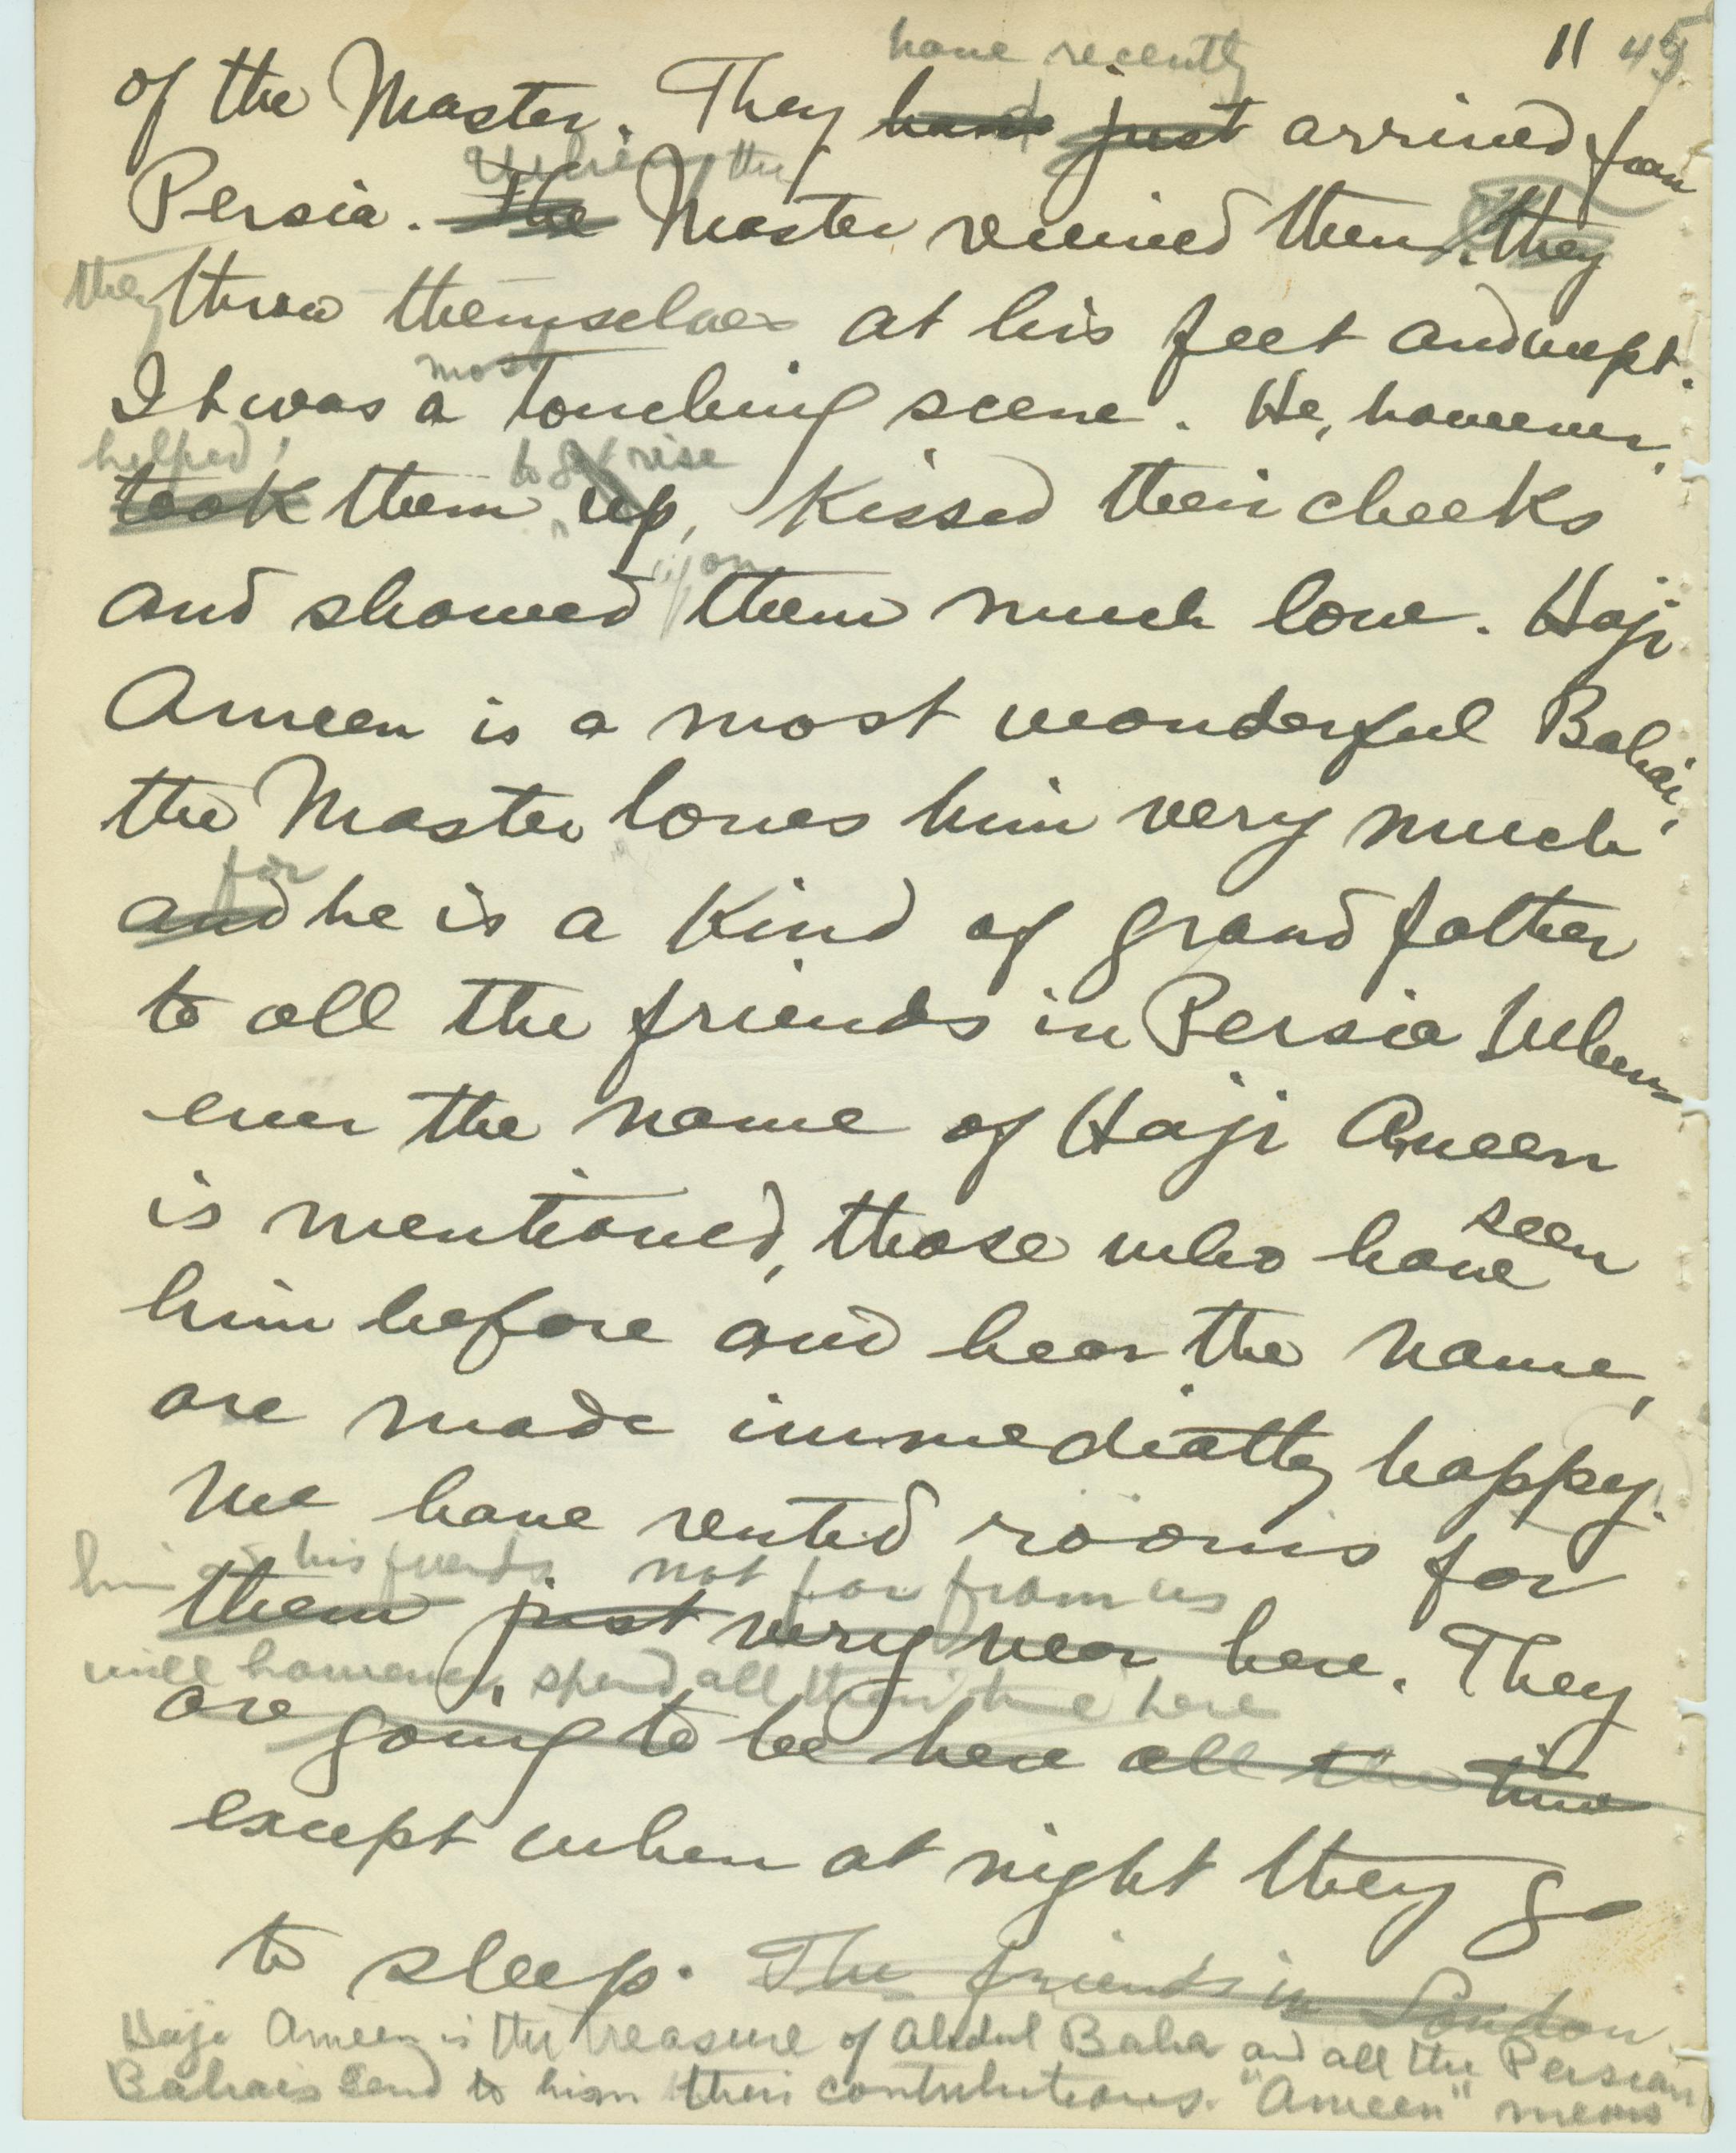 11 45
have recently
of the Master. They had just arrived from
When the
Persia. The Master received them. they
they threw themselves at his feet and wept.
most
It was a touching scene. He, however,
helped to get rise
took them up, kissed their cheeks
upon
and showed them much love. Haji
Ameen is a most wonderful Bahai,
the Master loves him very much
for
and he is a kind of grand father
to all the friends in Persia When
ever the name of Haji Ameen
seen
is mentioned, those who have
him before and hear the name,
are made immediatly happy.
We have rented rooms for
him and his friends not far from us
them just very near here. They
will however spend all their time here
are going to be here all the time
except when at night they go
to sleep. The friends in London
Haji Ameen is the treasure of Abdul Baha and all the Persian
Bahais send to him their contributions. "Ameen" means